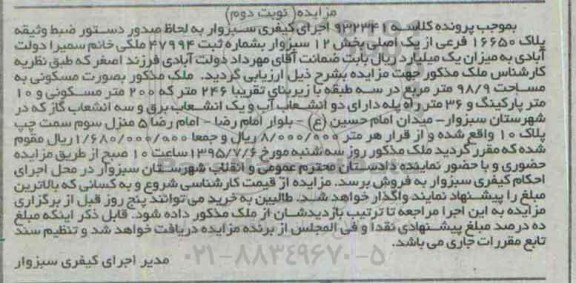 مزایده( نوبت دوم)
بموجب پرونده کلاسه ۹۳۲۳۴۱ اجرای کیفری سبزوار به لحاظ صدور دستور ضبط وثیقه
پلاک ۱۶۶۵۰ فرعی از یک اصلی بخش ۱۲ سبزوار بشماره ثبت ۴۷۹۹۴ ملکی خانم سمیرا دولت
آبادی به میزان یک میلیارد ریال بابت ضمانت آقای مهرداد دولت آبادی فرزند اصغر که طبق نظریه
کارشناس ملک مذکور جهت مزایده بشرح ذیل ارزیابی گردید. ملک مذکور بصورت مسکونی به
مساحت ۹۸/۹ متر مربع در سه طبقه با زیربنای تقریبا ۲۴۶ متر که ۲۰۰ متر مسکونی و ۱۰
متر پارکینگ و ۳۶ متر راه پله دارای دو انشعاب آب و یک انشعاب برق و سه انشعاب گاز که در
شهرستان سبزوار- میدان امام حسین (ع) - بلوار امام رضا - امام رضا ۵ منزل سوم سمت چپ
پلاک ۱۰ واقع شده و از قرار هر متر ۸/۰۰۰/۰۰۰ ریال و جمعا ۱/۶۸۰/۰۰۰/۰۰۰ ریال مقوم
شده که مقرر گردید ملک مذکور روز سه شنبه مورخ ۱۳۹۵/۷/۶ ساعت ۱۰ صبح از طریق مزایده
حضوری و با حضور نماینده دادستان محترم عمومی و انقلاب شهرستان سبزوار در محل اجرای
احکام کیفری سبزوار به فروش برسد. مزایده از قیمت کارشناسی شروع و به کسانی که بالاترین
مبلغ را پیشنهاد نمایند واگذار خواهد شد. طالبین به خرید می توانند پنج روز قبل از برگزاری
مزایده به این اجرا مراجعه تا ترتیب بازدیدشان از ملک مذکور داده شود. قابل ذکر اینکه مبلغ
ده درصد مبلغ پیشنهادی نقدا و فی المجلس از برنده مزایده دریافت خواهد شد و تنظیم سند
تابع مقررات جاری می باشد.
۰۲۱-۸۸۳۴۹۶۷۰-۵
مدیر اجرای کیفری سبزوار